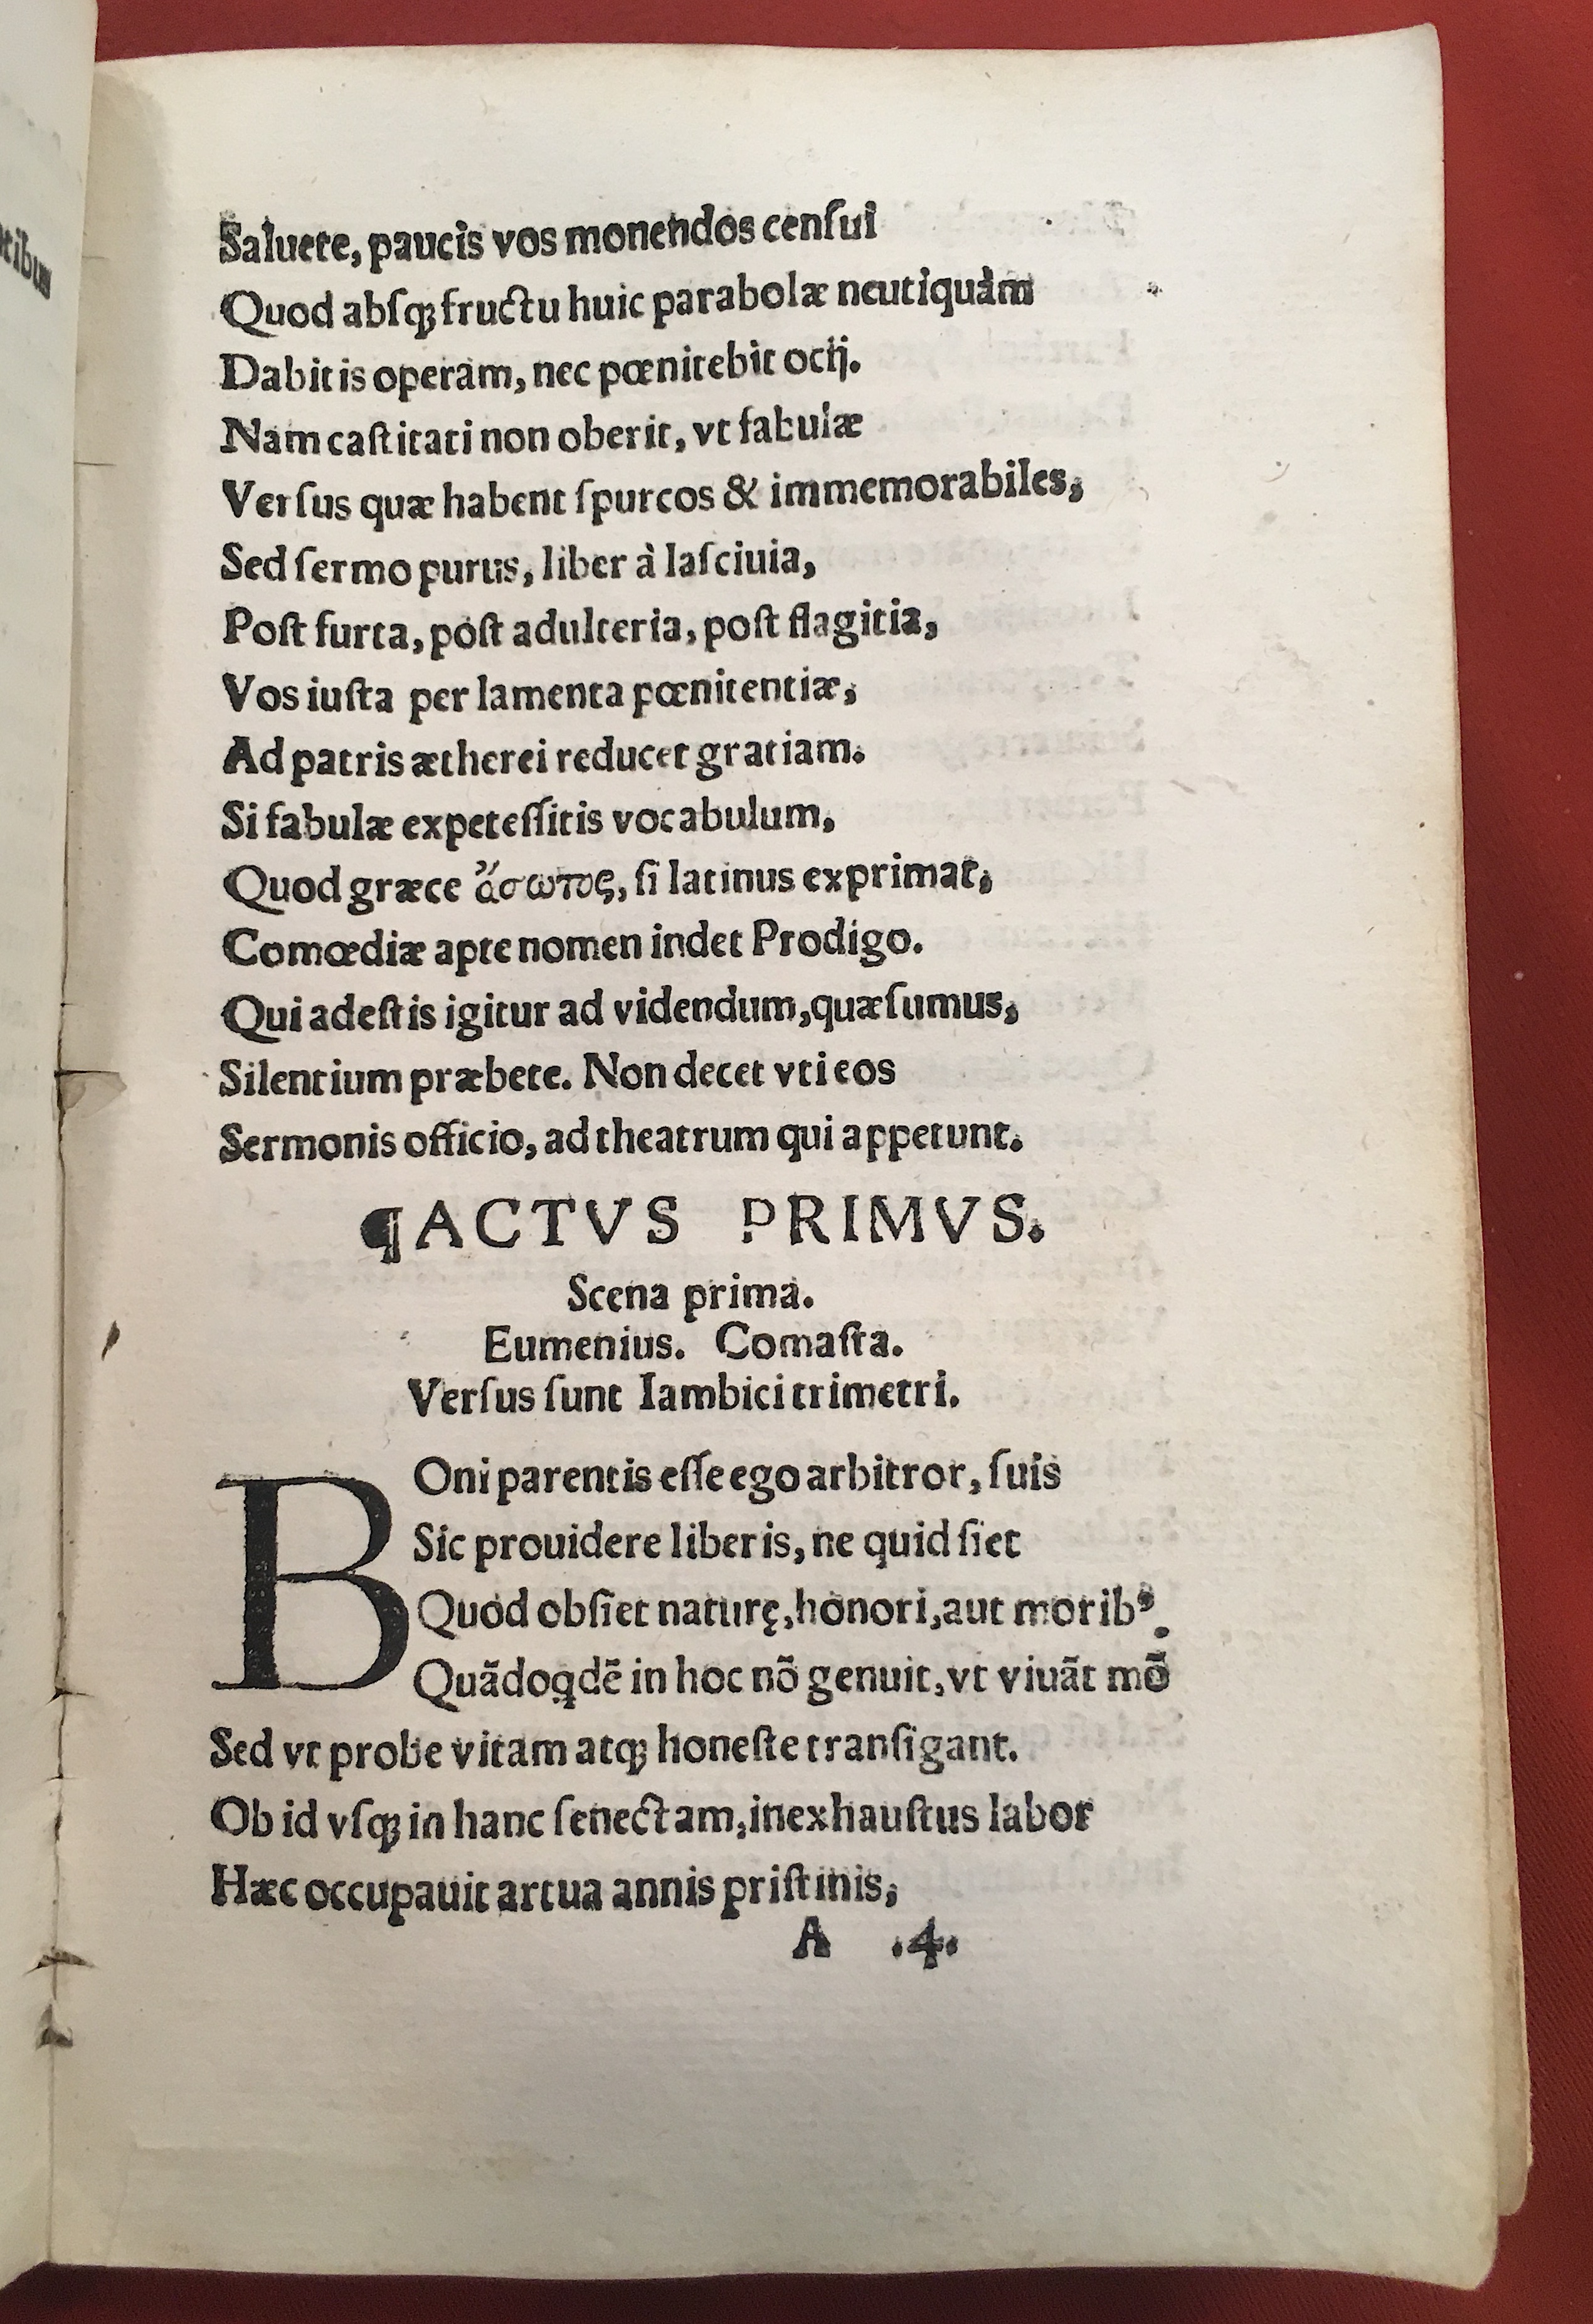 Saluete, paucis vos monendos cenſui
Quod abſqꝫ fructu huic parabolæ neutiquàm
Dabitis operam, nec pœnitebit ocij.
Nam caſtitati non oberit, vt fabulæ
Verſus quæ habent ſpurcos & immemorabiles,
Sed ſermo purus, liber à laſciuia,
Poſt furta, poſt adulteria, poſt flagitia,
Vos iuſta per lamenta pœnitentiæ,
Ad patris ætherei reducet gratiam.
Si fabulæ expeteſſitis vocabulum,
Quod græce ἄσωτος, ſi latinus exprimat,
Comœdiæ apte nomen indet Prodigo.
Qui adeſtis igitur ad videndum, quæſumus,
Silentium præbete. Non decet vti eos
Sermonis officio, ad theatrum qui appetunt.
¶ACTVS PRIMVS.
Scena prima.
Eumenius. Comaſta.
Verſus ſunt Iambici trimetri.
BOni parentis eſſe ego arbitror, ſuis
Sic prouidere liberis, ne quid ſiet
Quod obſiet naturę, honori, aut moribꝰ.
Quãdoq̇dẽ in hoc nõ genuit, vt viuãt mõ
Sed vt probe vitam atqꝫ honeſte tranſigant.
Ob id vſqꝫ in hanc ſenectam, inexhauſtus labor
Hæc occupauit artua annis priſtinis,
A .4.